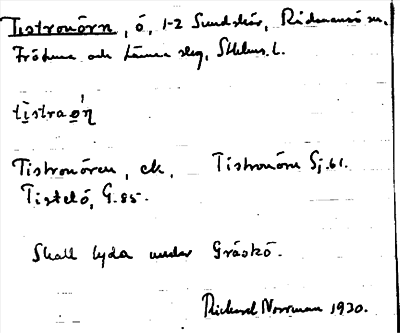 Tistronörn, ö, 1-2 Sundskär, Rådmansö sn.
Frötuna och Länna slg, Sthlms l.
tistraøŋ
Tistronören, ek, Tistronörn Sj. 61.
Tistelö, G. 85.
Skall lyda under Gräskö.
Rickard Norrman 1930.